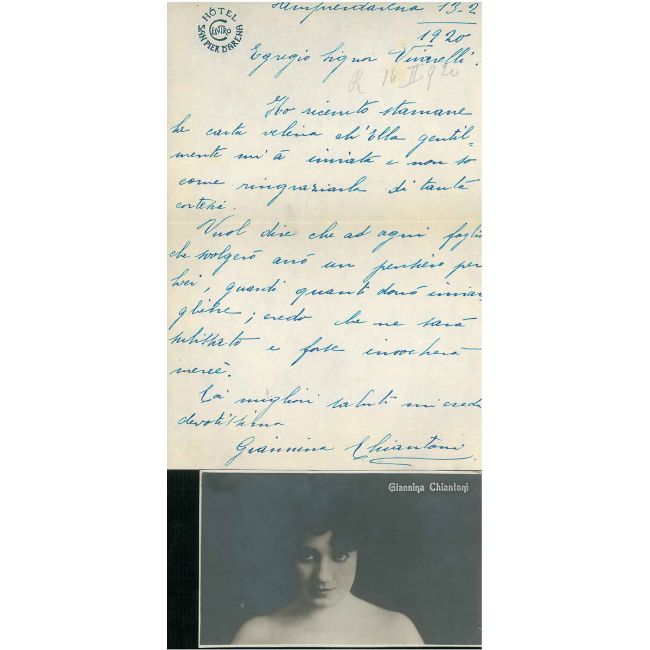 HÔTEL
CENTRO
SAN PIER D'ARENA
Sampierdarena 13-2
1920
Egregio Signor Vivarelli.
R 14 II 920
Ho ricevuto stamane
la carta velina ch'Ella gentil=
mente mi à inviata e non so
come ringraziarla di tanta
cortesia.
Vuol dire che ad ogni foglio
che svolgerò avrò un pensiero per
Lei, quindi quanti dovrò inviar=
gliene; credo che ne sarà
subissato e forse invocherà
mercè.
Coi migliori saluti mi creda
devotissima
Giannina Chiantoni
Giannina Chiantoni